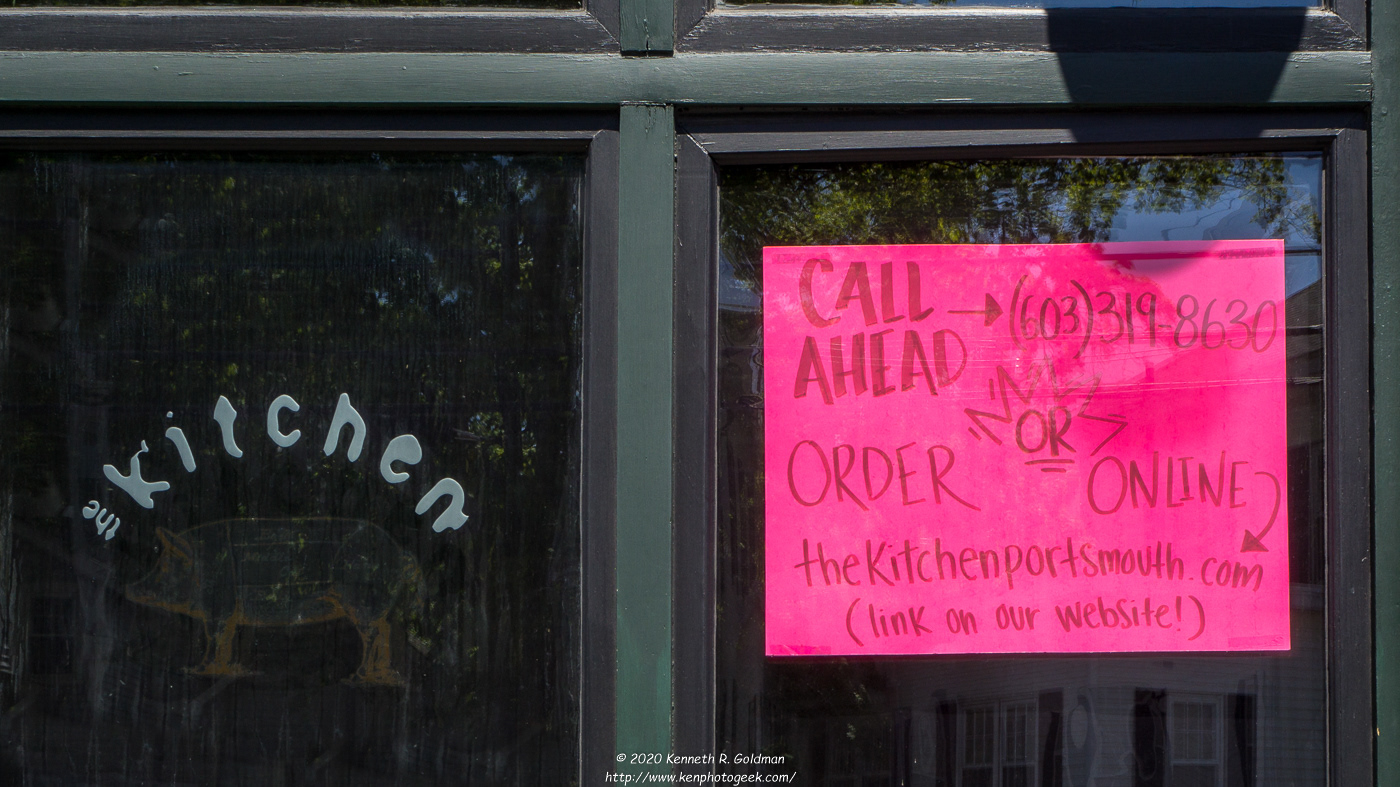 the Kitchen
CALL
AHEAD → (603)319-8630
OR
ORDER ONLINE
theKitchenportsmouth.com
(link on our website!)
© 2020 Kenneth R. Goldman
http://www.kenphotogeek.com/